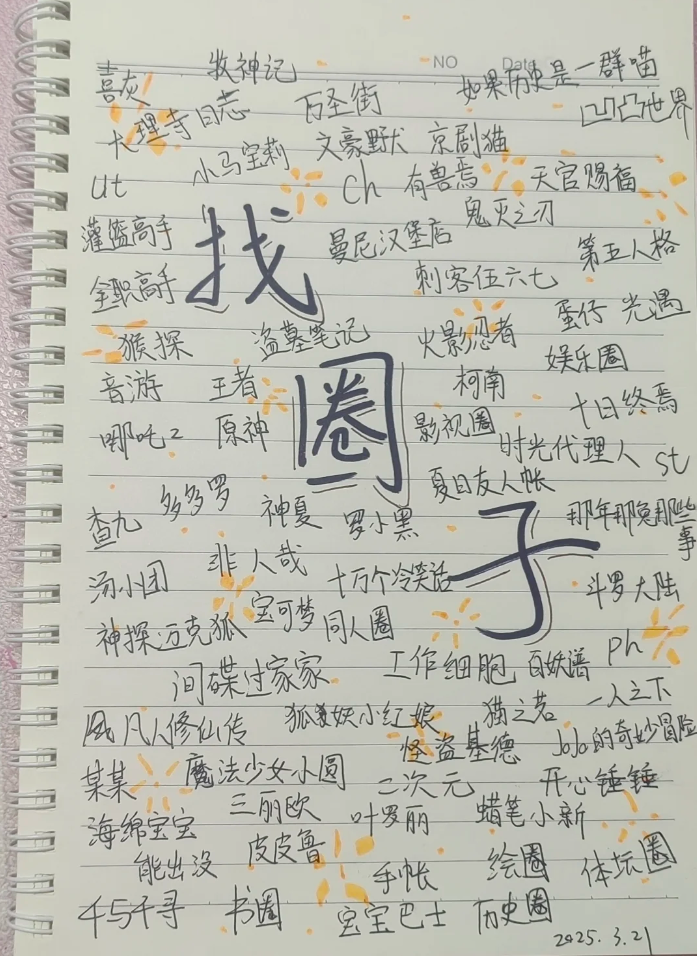 NO Date
喜灰 牧神记 万圣街 如果历史是一群喵
大理寺日志 凹凸世界
小马宝莉 文豪野犬 京剧猫
ut ch 有兽焉 天官赐福
灌篮高手 找 曼尼汉堡店 鬼灭之刃
全职高手 刺客伍六七 第五人格
猴探 盗墓笔记 火影忍者 蛋仔 光遇
音游 王者 圈 柯南 娱乐圈
哪吒2 原神 影视圈 十日终焉
时光代理人 st
多多罗 夏目友人帐
查九 神夏 罗小黑 子 那年那兔那些事
汤小团 非人哉 十万个冷笑话 斗罗大陆
神探迈克狐 宝可梦 同人圈
间碟过家家 工作细胞 百妖谱 ph
凡人修仙传 狐妖小红娘 猫之茗 一人之下
怪盗基德 JoJo的奇妙冒险
某某 魔法少女小圆 二次元 开心锤锤
海绵宝宝 三丽欧 叶罗丽 蜡笔小新
能出没 皮皮鲁 手帐 绘圈 体坛圈
千与千寻 书圈 宝宝巴士 历史圈
2025.3.21